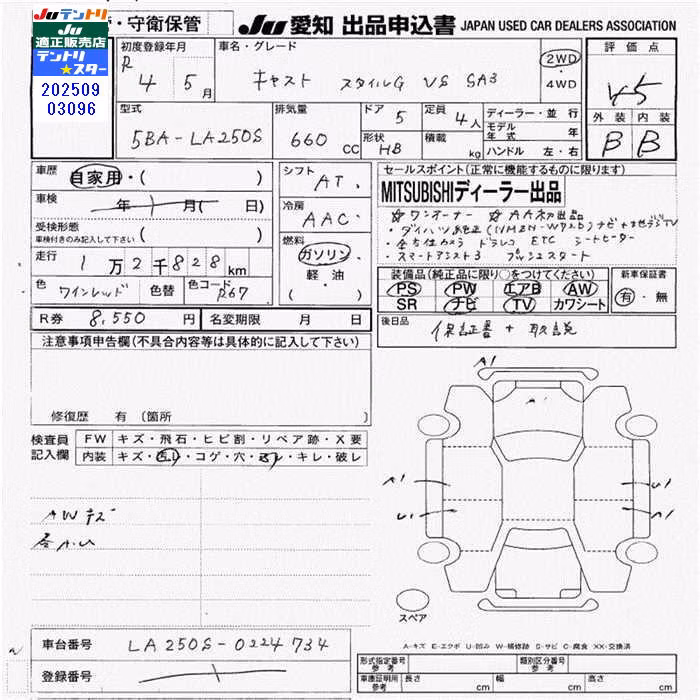 Juテントリ
適正販売店
テントリ
★スター
202509
03096
・守衛保管
Ju 愛知 出品申込書 JAPAN USED CAR DEALERS ASSOCIATION
初度登録年月
R 4 5月
車名・グレード
キャスト スタイルG VS SA3
2WD
・
4WD
評価点
4.5
外装 内装
B B
型式
5BA-LA250S
排気量
660 CC
ドア 5
形状 HB
定員 4人
積載 kg
ディーラー・並行
モデル年式 年
ハンドル 左・右
車歴
自家用・( )
車検
年 月( 日)
受検形態
車検付きのみ記入して下さい ( )
走行
1万2千828km
色
ワインレッド
色替
色コード
R67
シフト
AT
冷房
AAC
燃料
ガソリン
・
軽・油
( )
セールスポイント(正常に機能するものに限ります)
MITSUBISHIディーラー出品
☆ワンオーナー ☆AA初出品
・ダイハツ純正(NMZN-W72D)ナビ+地デジTV
・全方位カメラ ドラレコ ETC シートヒーター
・スマートアシスト3 プッシュスタート
装備品(純正品に限り○をつけてください)
PS PW エアB AW
SR ナビ TV カワシート
新車保証書
有・無
R券 8,550 円
名変期限 月 日
後日品
保証書 + 取説
注意事項申告欄(不具合内容等は具体的に記入して下さい)
修復歴 有(箇所 )
検査員
記入欄
FW キズ・飛石・ヒビ割・リペア跡・X要
内装 キズ・汚レ・コゲ・穴・スレ・キレ・破レ
AWキズ
各A.U
A1
A1
A1
U1
U1
A1
スペア
A-キズ E-エクボ U-凹み W-補修跡 S-サビ C-腐食 XX-交換済
車台番号 LA250S-0224734
登録番号
形式指定番号
参考
類別区分番号
参考
車庫証明用
参考
長さ cm 幅 cm 高さ cm